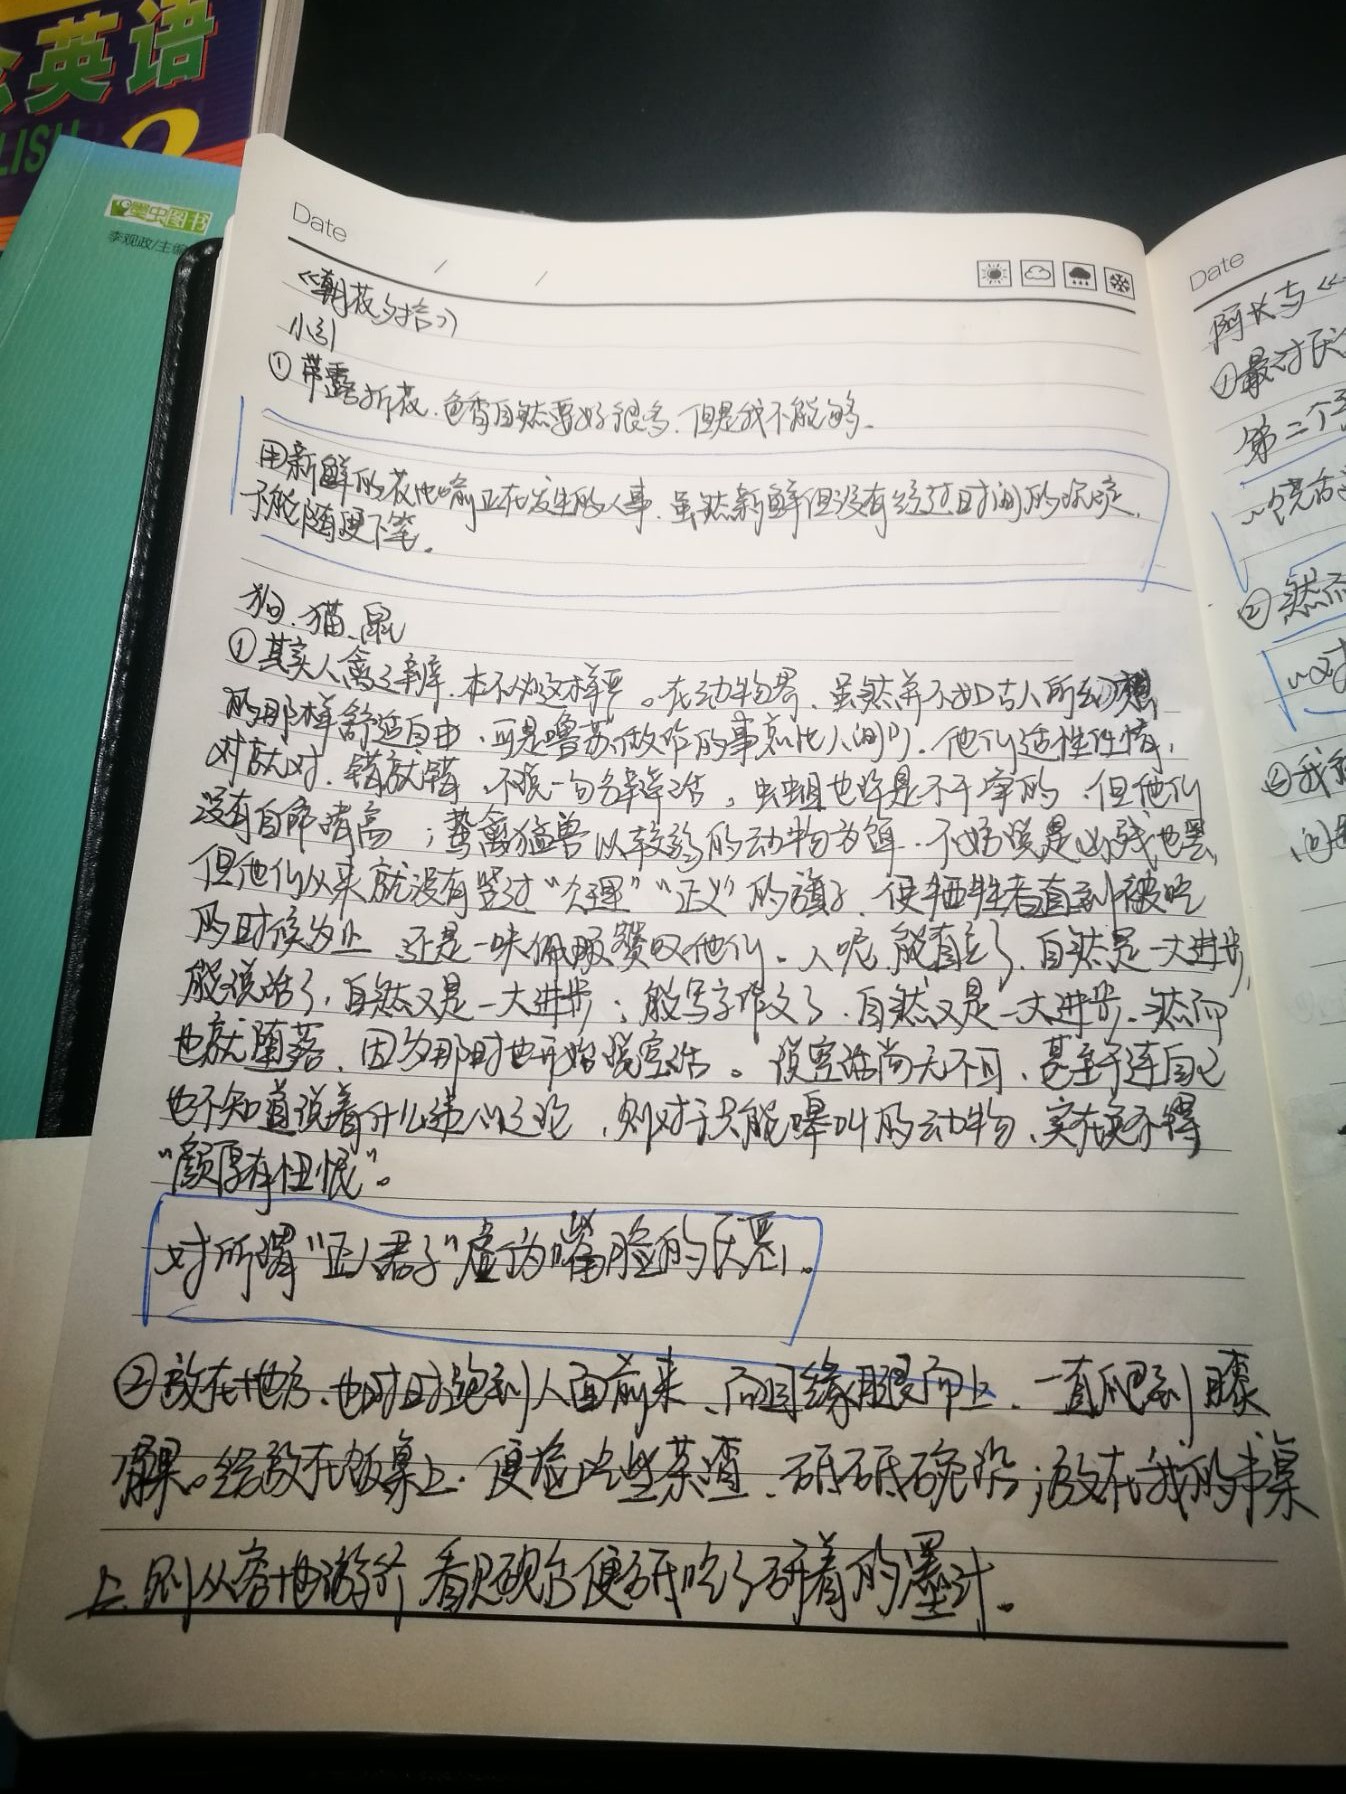 英语
LISH
2
星虫图书
李观政/主编
Date
《朝花夕拾》
小引
①带露折花,色香自然要好很多,但是我不能够。
用新鲜的花比喻正在发生的人事,虽然新鲜但没有经过时间的沉淀,
不能随便下笔。
狗、猫、鼠
①其实人禽之辨,本不必这样严。在动物界,虽然并不如古人所幻想
的那样舒适自由,可是噜苏做作的事总比人间少。他们适性任情,
对就对,错就错,不说一句分辩话。虫蛆也许是不干净的,但他们
没有自命清高;鸷禽猛兽以较弱的动物为饵,不妨说是凶残的罢,
但他们从来就没有竖过“公理”“正义”的旗子,使牺牲者直到被吃
的时候为止,还是一味佩服赞叹他们。人呢,能直立了,自然是一大进步,
能说话了,自然又是一大进步;能写字作文了,自然又是一大进步。然而
也就堕落,因为那时也开始说空话。说空话尚无不可,甚至于连自己
也不知道说着什么违心之论,则对于只能嗥叫的动物,实在免不得
“颜厚有忸怩”。
对所谓“正人君子”虚伪嘴脸的厌恶。
②放在地方,也时时跑到人面前来,而且缘腿而上,一直爬到膝
髁。给放在饭桌上,便捡吃些菜渣,舐舐碗沿;放在我的书桌
上,则从容地游行,看见砚台便舐吃了研着的墨汁。
Date
阿长与《
①最讨厌
第二个
②然而
③我
问题